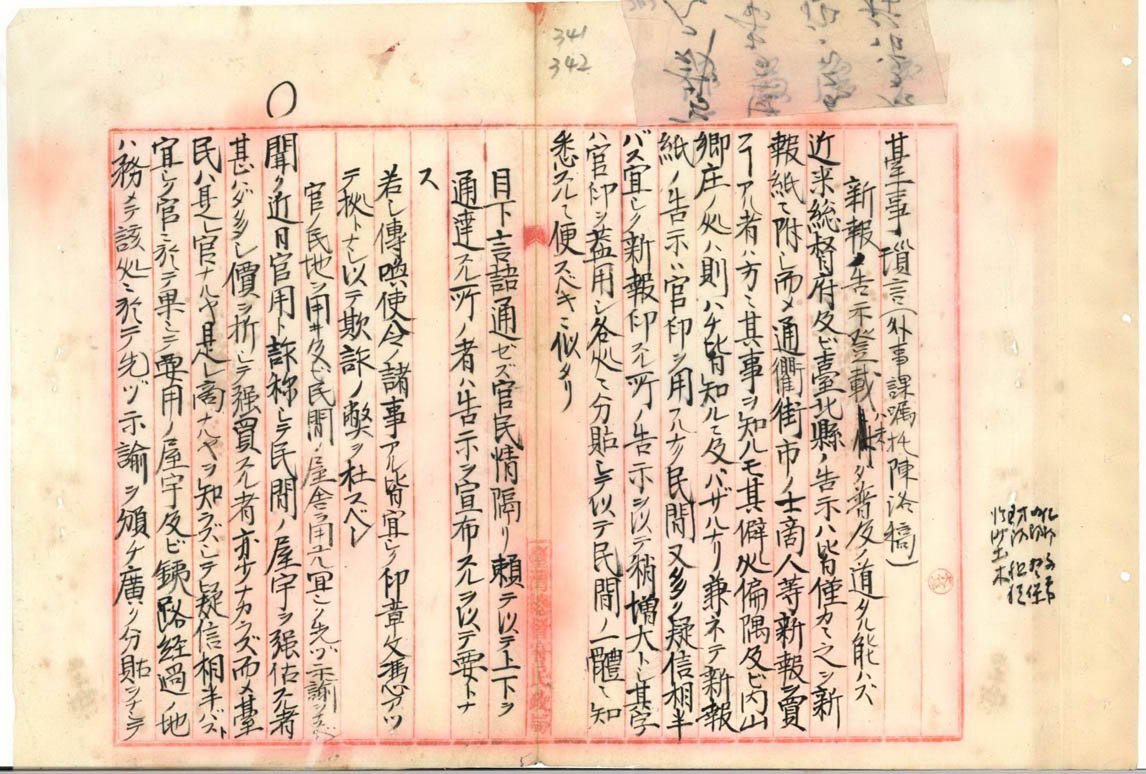 341
342
臺事瑣言(外事課囑托陳洛稿)
新報ノ告示登載ハ未ダ普及ノ道タル能ハズ
近来総督府及ビ臺北縣ノ告示ハ皆僅カニ之ヲ新
報紙ニ附シ而メ通衢街市ノ士商人等新報ヲ買
フ一アル者ハ方ニ其事ヲ知ルモ其僻处偏隅及ビ内山
鄉庄ノ处ハ則ハチ皆知ルニ及バザルナリ兼ネテ新報
紙ノ告示ハ官印ヲ用スルナク民間又多ク疑信相半
バス宜シク新報印スル所ノ告示ヲ以テ稍増大トシ其字
ハ官印ヲ蓋用シ各处ニ分貼シテ以テ民間ノ一體ニ知
悉スルニ便スベキニ似タリ
目下言語通ゼズ官民情隔リ頼テ以テ上下ヲ
通達スル所ノ者ハ告示ヲ宣布スルヲ以テ要トナ
ス
若シ傳喚使令ノ諸事アル皆宜シク印章文憑アツ
テ拠トナシ以テ欺詐ノ弊ヲ杜スベシ
官ノ民地ヲ用ヰ及ビ民間ノ屋舎ヲ用ユル宜シク先ヅ示諭シ
○
聞ク近日官用ト詐称シテ民間ノ屋宇ヲ强估スル者
甚ハダ多シ價ヲ折シテ强買スル者亦少ナカラズ而メ臺
民ハ是レ官ナルヤ是レ商ナルヤヲ知ラズシテ疑信相半バス
宜シク官ニ於テ果シテ要用ノ屋宇及ビ銕路経過ノ地
ハ務メテ該处ニ於テ先ヅ示諭ヲ頒チ廣ク分貼ヲナシテ
臺灣総督府民政局